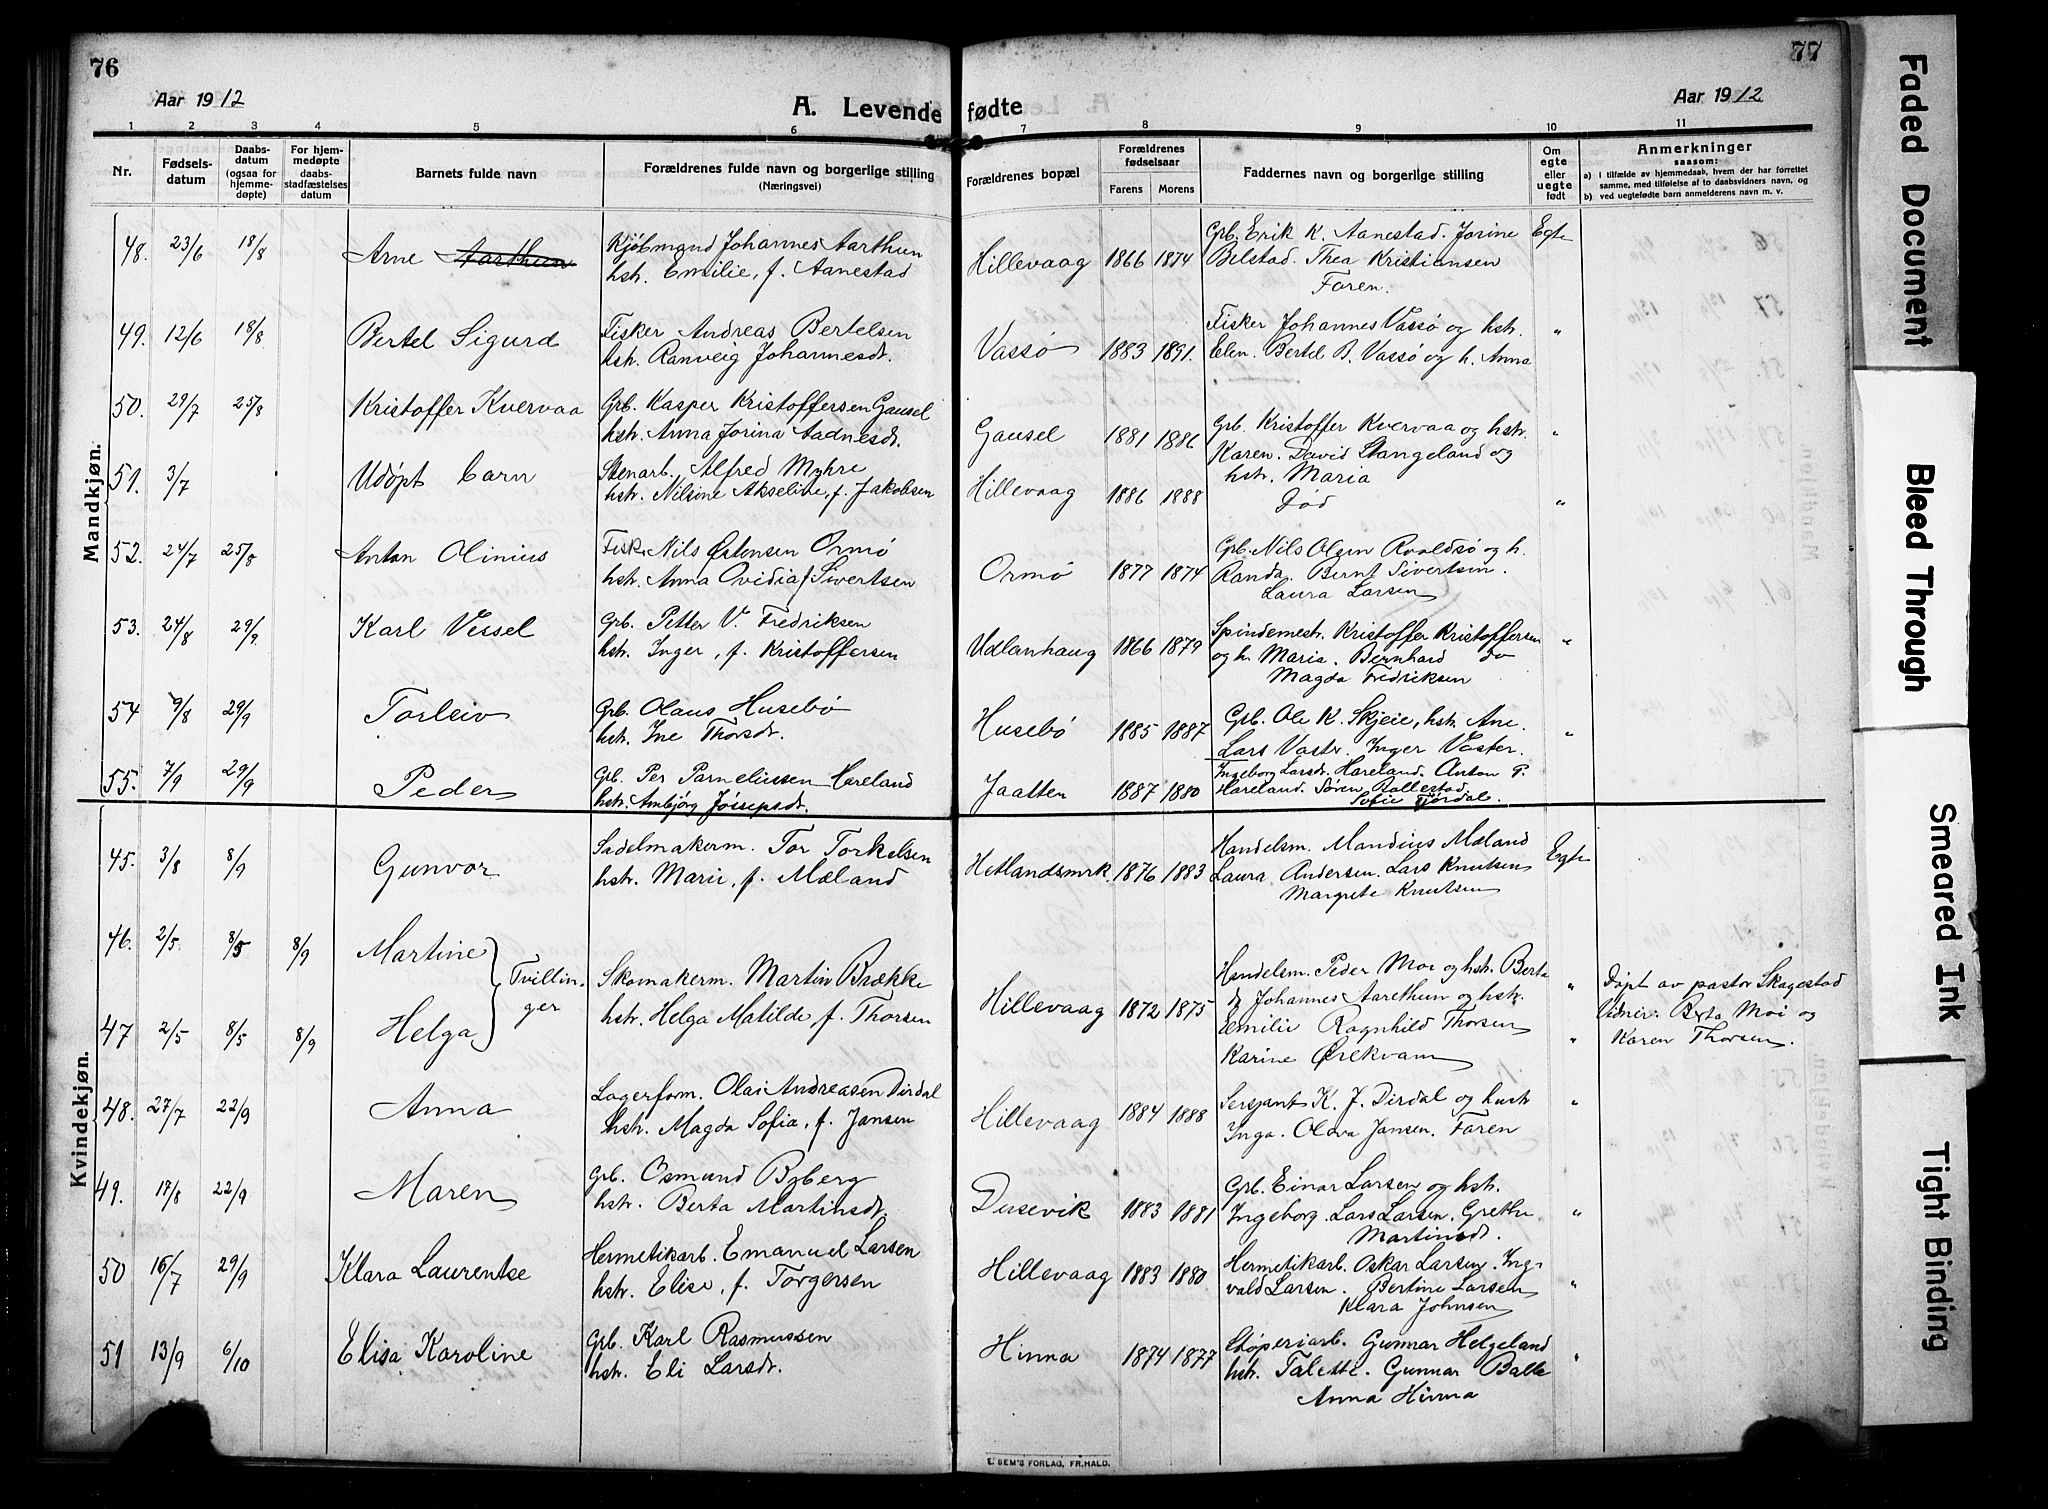 76
Aar 1912
A. Levende
1 2 3 4 5 6
Nr.
Fødsels-
datum
Daabs-
datum
(ogsaa for
hjemme-
døpte)
For hjem-
medøpte
daabs-
stadfæstelses
datum
Barnets fulde navn
Forældrenes fulde navn og borgerlige stilling
(Næringsvei)
Mandkjøn.
48. 23/6 18/8 Arne Aarthun Kjøbmand Johannes Aarthun
hstr. Emilie, f. Aanestad
49. 12/6 18/8 Bertel Sigurd Fisker Andreas Bertelsen
hstr. Ranveig Johannesdt.
50. 29/7 25/8 Kristoffer Kvervaa Grb. Kasper Kristoffersen Gausel
hstr. Anna Jorina Aadnesdt.
51. 3/7 Udøpt barn Stenarb. Alfred Myhre
hstr. Nilsine Akseline, f. Jakobsen
52. 24/7 25/8 Anton Olinius Fisk. Nils Østensen Ormø
hstr. Anna Ovidia f. Sivertsen
53. 24/8 29/9 Karl Vessel Grb. Petter V. Fredriksen
hstr. Inger, f. Kristoffersen
54 9/8 29/9 Torleiv Grb. Olaus Husebø
hstr. Ine Thorsdt.
55. 7/9 29/9 Peder Grb. Per Parneliussen Hareland
hstr. Ambjørg Jössepsdt.
Kvindekjøn.
45. 3/8 8/9 Gunvor Sadelmakerm. Tor Torkelsen
hstr. Marie, f. Mæland
46. 2/5. 8/5 8/9 Martine
Tvillin-
ger
Skomakerm. Martin Brække
hstr. Helga Matilde, f. Thorsen
47 2/5 8/5 8/9 Helga
48. 27/7 22/9 Anna Lagerform. Olai Andreasen Dirdal
hstr. Magda Sofia, f. Jansen
49. 17/8 22/9 Maren Grb. Osmund Byberg
hstr. Berta Martinsdt.
50 16/7 29/9 Klara Laurentse Hermetikarb. Emanuel Larsen
hstr. Elise, f. Torgersen
51 13/9 6/10 Elisa Karoline Grb. Karl Rasmussen
hstr. Eli Larsdt.
77
fødte
Aar 1912
7 8 9 10 11
Forældrenes bopæl
Forældrenes
fødselsaar
Farens Morens
Faddernes navn og borgerlige stilling
Om
egte
eller
uegte
født
Anmerkninger
saasom:
a) i tilfælde av hjemmedaab, hvem der har forrettet
samme, med tilføielse af to daabsvidners navn, og
b) ved uegtefødte barn anmelderens navn m. v.
Hillevaag 1866 1874 Grb. Erik K. Aanestad. Jorine Egte
Belstad. Thea Kristiansen
Faren.
Vassø 1883 1891. Fisker Johannes Vassø og hstr. "
Elen. Bertel B. Vassø og h. Anna
Gausel 1881 1886 Grb. Kristoffer Kvervaa og hstr. "
Karen. David Stangeland og
hstr. Maria
Hillevaag 1886 1888 Død "
Ormø 1877 1874 Grb. Nils Olsen Roaldsø og h.
Randa. Bernt Sivertsen.
Laura Larsen
Udlanhaug 1866 1879 Spindemestr. Kristoffer Kristoffersen "
og h. Maria. Bernhard do
Magda Fredriksen
Husebø 1885 1887 Grb. Ole K. Skjeie, hstr. Ane. "
Lars Vaster. Inger Vaster.
Jaatten 1887 1880 Ingeborg Larsdt. Hareland. Anton P.
Hareland. Søren Rallestad
Sofie Fjørdal.
Hetlandsmrk. 1876 1883 Handelsm. Mandius Mæland Egte
Laura Andersen. Lars Knutsen
Margrete Knutsen
Hillevaag 1872 1875 Handelsm. Peder Moi og hstr. Berta "
Johannes Aarethun og hstr.
Emilie Ragnhild Thorsen "
Karine Ørekvam
Døpt av pastor Skagestad
Vidner: Berta Moi og
Karen Thorsen.
Hillevaag 1884 1888 Sersjant K. J. Dirdal og hustr "
Inga. Olava Jansen. Faren
Dusevik 1883 1881 Grb. Einar Larsen og hstr. "
Ingeborg. Lars Larsen. Grethe
Martinsdt.
Hillevaag 1883 1880 Hermetikarb. Oskar Larsen. Ing- "
vald Larsen. Bertine Larsen
Klara Johnsen
Hinna 1874 1877 Støperiarb. Gunnar Helgeland "
hstr. Talette. Gunnar Balle
Anna Hinna
E. SEM'S FORLAG, FR.HALD.
Faded Document
Bleed Through
Smeared Ink
Tight Binding